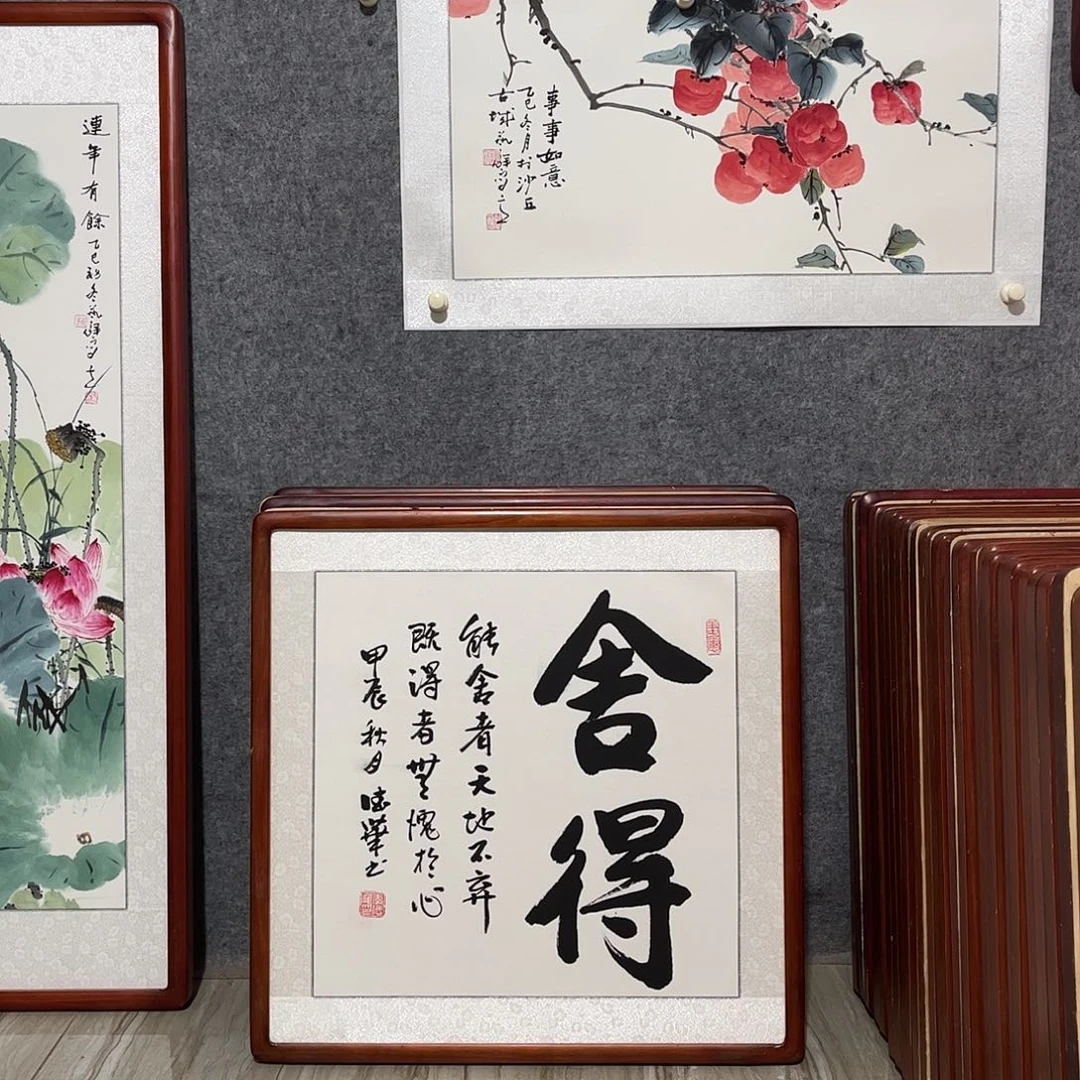 事事如意
乙巳冬月於沙丘
古城
連年有餘 乙巳初冬
舍得
能舍者天地不弃
既得者無愧於心
甲辰秋月